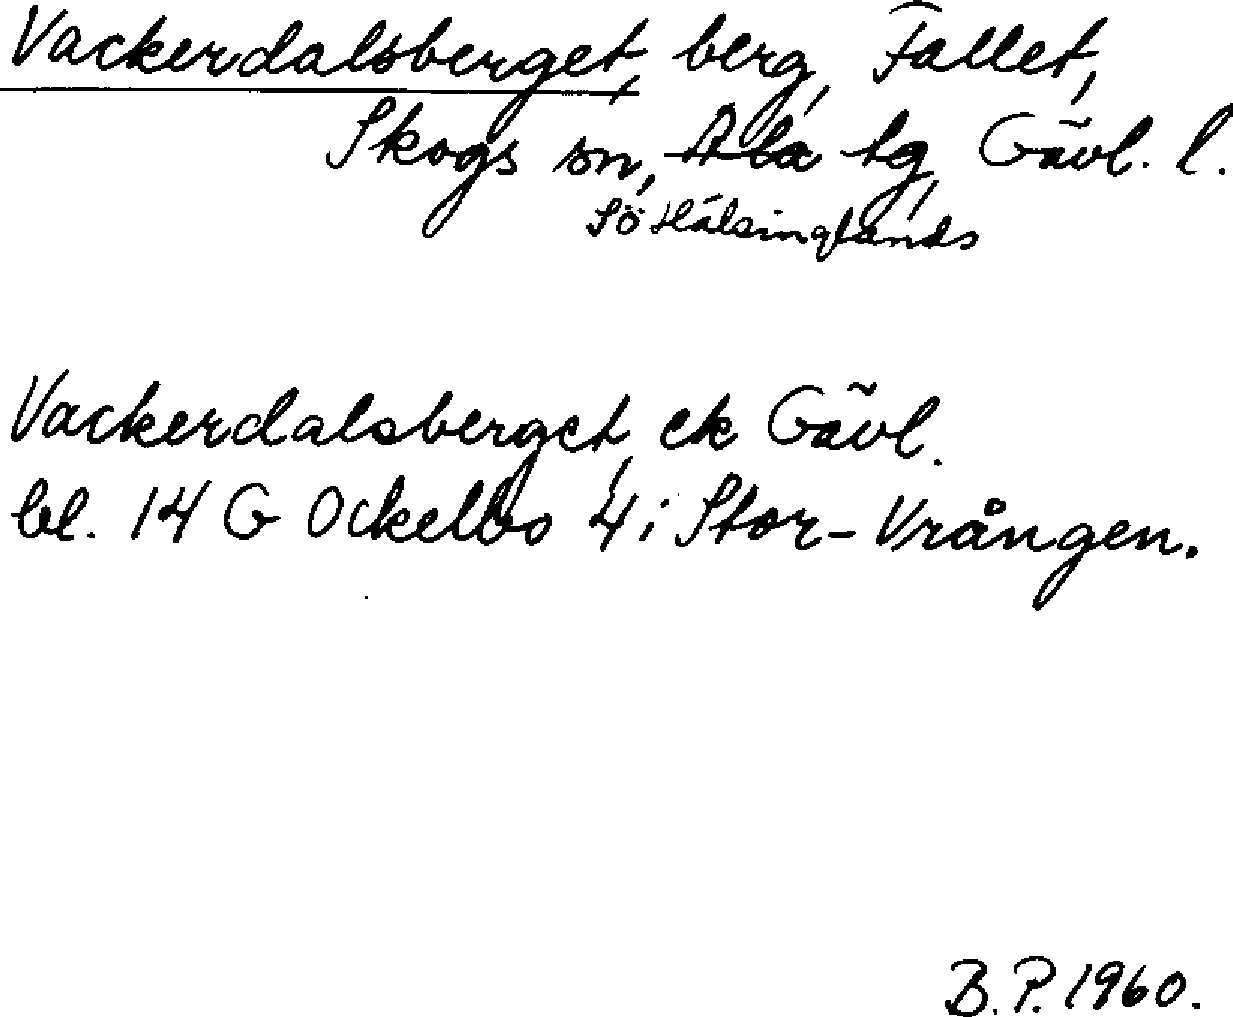 Vackerdalsberget, berg, Fallet,
Skogs sn, Ala tg, Gävl. l.
Sö Hälsinglands
Vackerdalsberget, ek Gävl.
bl. 14 G Ockelbo 4i Stor-Vrången.
B.P. 1960.